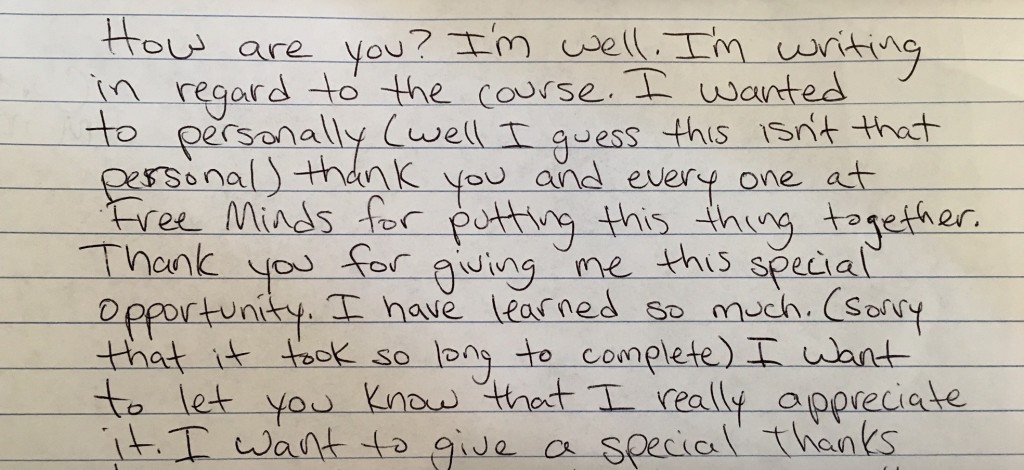 How are you? I'm well. I'm writing
in regard to the course. I wanted
to personally (well I guess this isn't that
personal) thank you and every one at
Free Minds for putting this thing together.
Thank you for giving me this special
opportunity. I have learned so much. (sorry
that it took so long to complete) I want
to let you know that I really appreciate
it. I want to give a special thanks